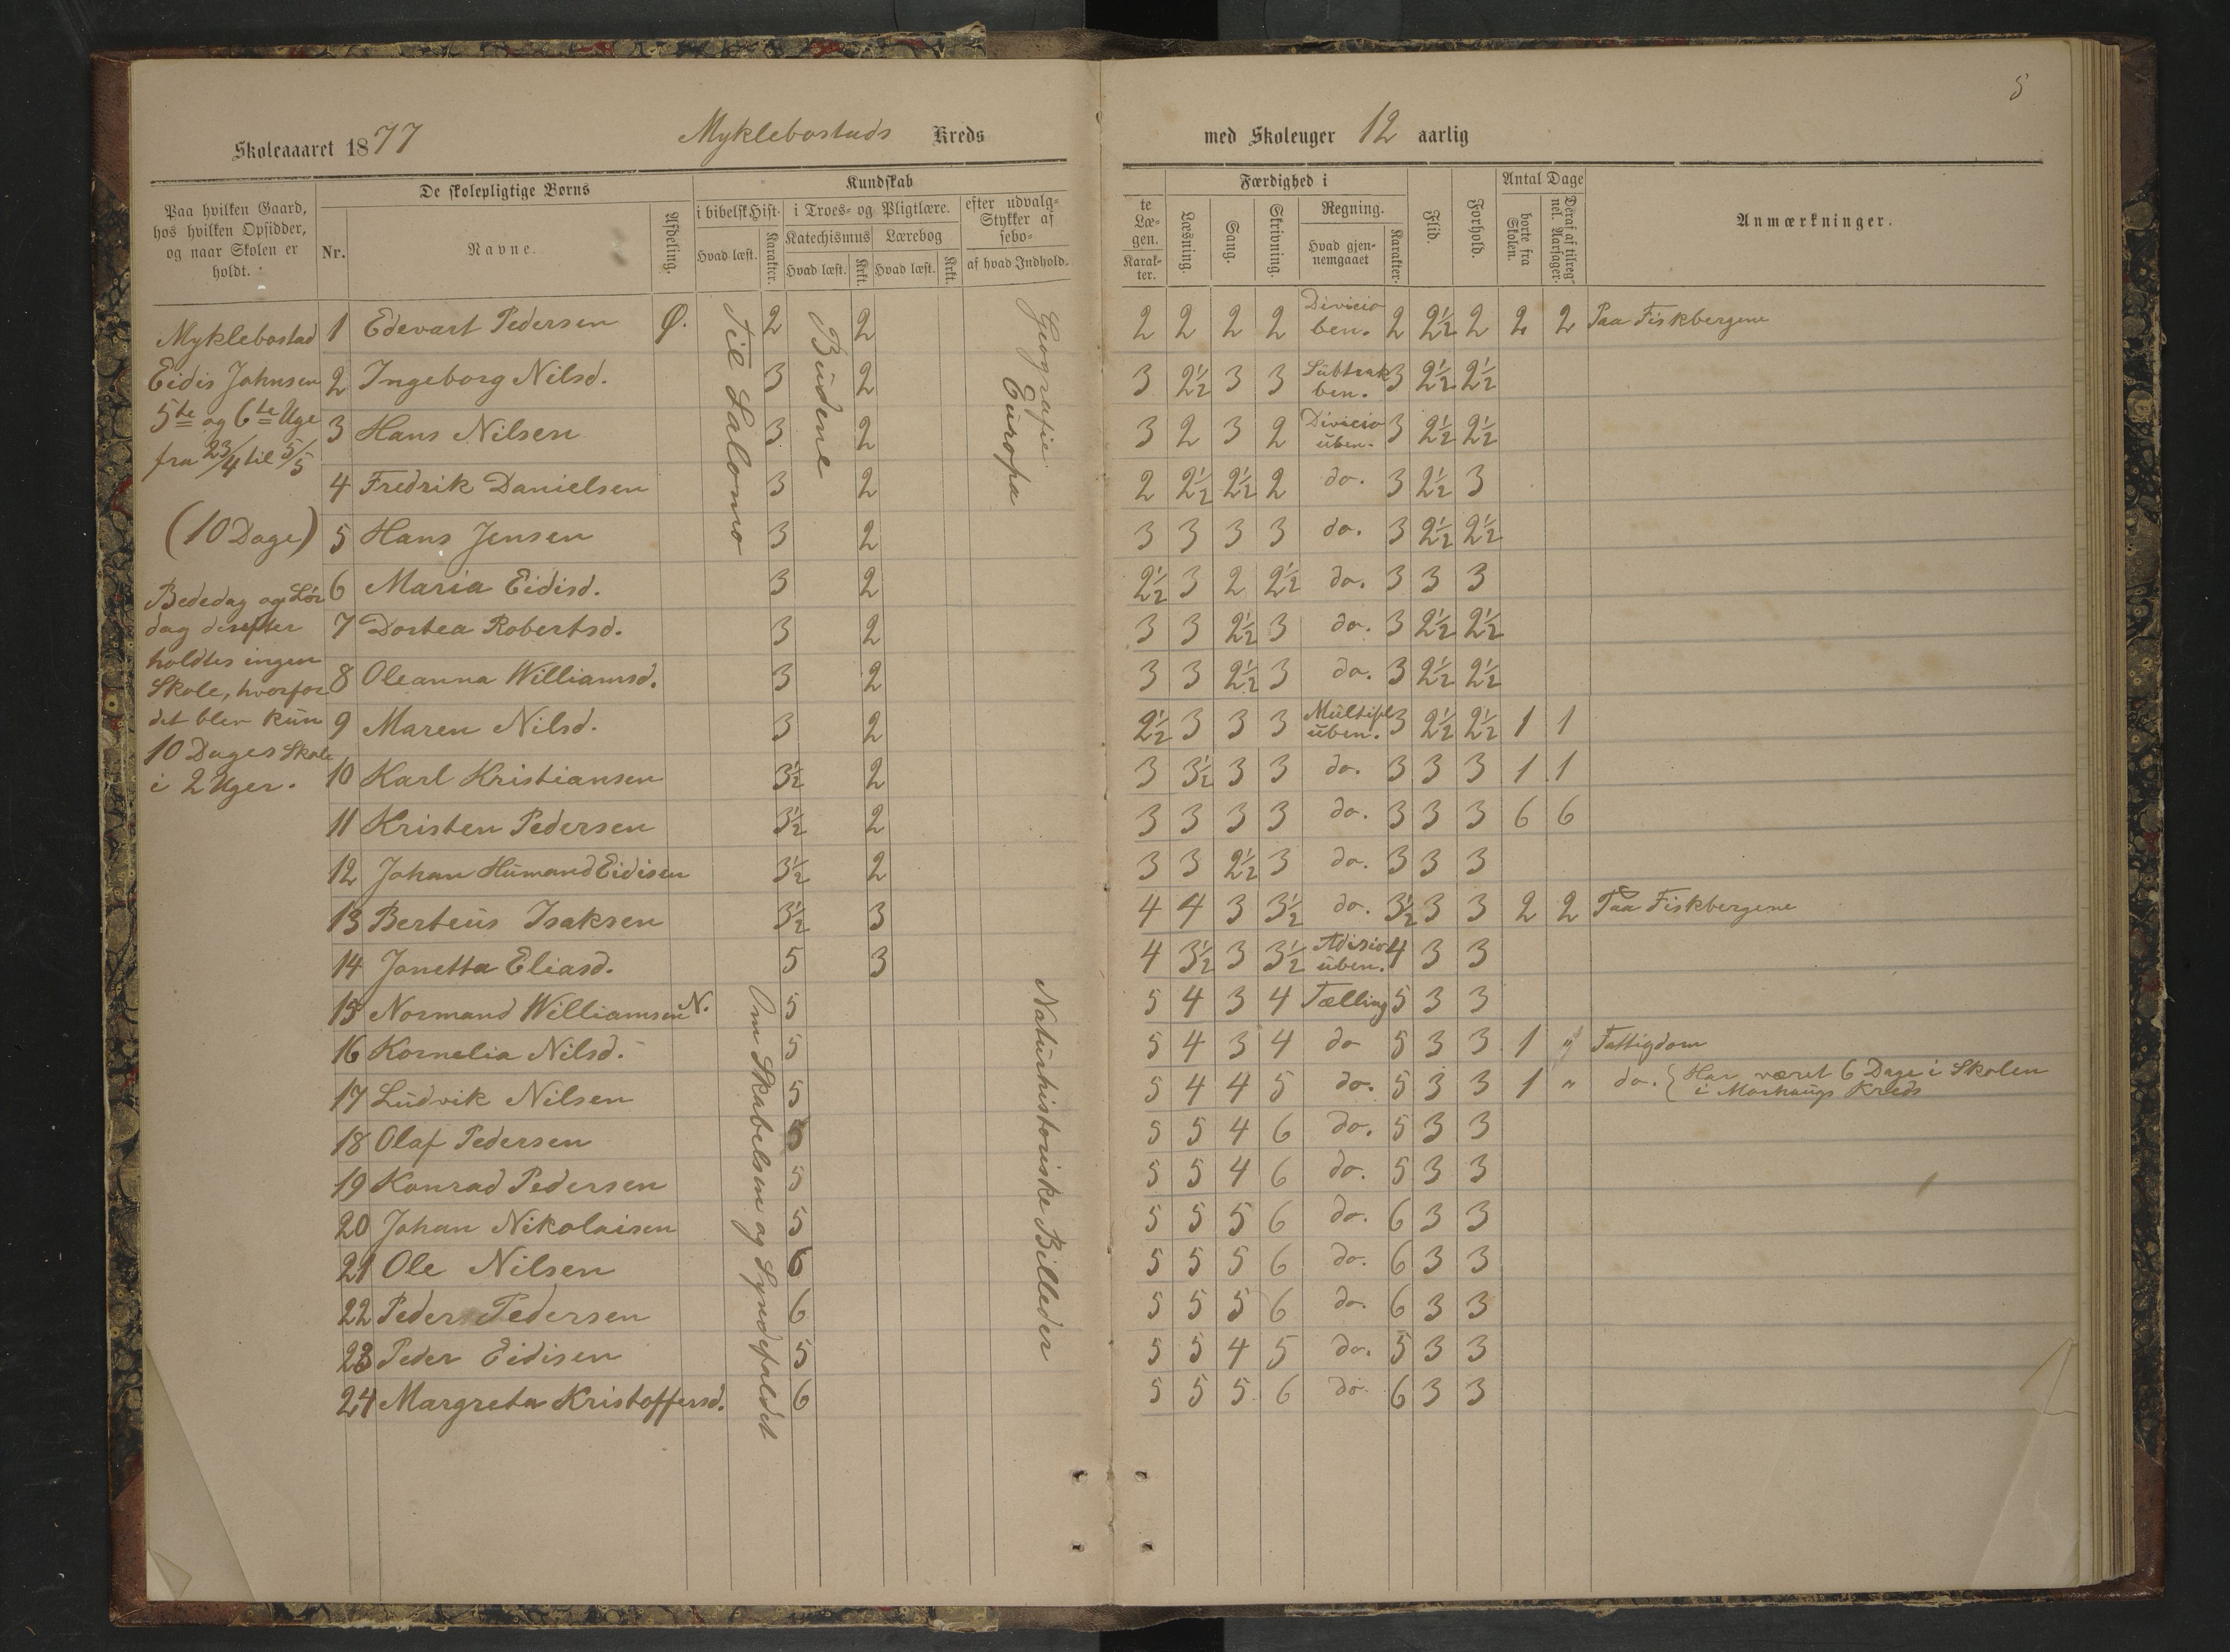 5
Skoleaaaret 1877 Myklebostads Kreds med Skoleuger 12 aarlig
Paa hvilken Gaard, hos hvilken Opsidder, og naar Skolen er holdt.
De skolepligtige Børns
Nr. Navne. Afdeling.
Kundskab
i bibelsk Hist. Hvad læst. Karakter.
i Troes- og Pligtlære.
Katechismus Hvad læst. Krkt.
Lærebog Hvad læst. Krkt.
efter udvalg- Stykker af sebo- af hvad Indhold.
te Læ- gen. Karak- ter.
Færdighed i
Læsning. Sang. Skrivning.
Regning. Hvad gjen- nemgaaet Karakter.
Flid. Forhold.
Antal Dage
borte fra Skolen. Deraf af tilreg- nel. Aarsager.
Anmærkninger.
Myklebostad
Eidis Johnsen
5te og 6te Uge
fra 23/4 til 5/5
(10 Dage)
Bededag og Lör
dag derefter
holdtes ingen
Skole, hvorfor
det blev kun
10 Dages Skole
i 2 Uger.
Til Salomo
Budene
Geografie
Europa
Om Skabelsen og Syndefaldet
Naturhistoriske Billeder
1 Edevart Pedersen Ø. 2 2 2 2 2 2 Divicio ben. 2 2½ 2 2 2 Paa Fiskbergene
2 Ingeborg Nilsd. 3 2 3 2½ 3 3 Subtrak ben. 3 2½ 2½
3 Hans Nilsen 3 2 3 2 3 2 Divicio uben. 3 2½ 2½
4 Fredrik Danielsen 3 2 2 2½ 2½ 2 do. 3 2½ 3
5 Hans Jensen 3 2 3 3 3 3 do. 3 2½ 2½
6 Maria Eidisd. 3 2 2½ 3 2 2½ do. 3 3 3
7 Dortea Robertsd. 3 2 3 3 2½ 3 do. 3 2½ 2½
8 Oleanna Williamsd. 3 2 3 3 2½ 3 do. 3 2½ 2½
9 Maren Nilsd. 3 2 2½ 3 3 3 Multipl uben. 3 2½ 2½ 1 1
10 Karl Kristiansen 3½ 2 3 3½ 3 3 do. 3 3 3 1 1
11 Kristen Pedersen 3½ 2 3 3 3 3 do. 3 3 3 6 6
12 Johan Humand Eidisen 3½ 2 3 3 2½ 3 do. 3 3 3
13 Berteus Isaksen 3½ 3 4 4 3 3½ do. 3½ 3 3 2 2 Paa Fiskbergene
14 Jonetta Eliasd. 5 3 4 3½ 3 3½ Adisio uben. 4 3 3
15 Normand Williamsen N. 5 5 4 3 4 Tælling 5 3 3
16 Kornelia Nilsd. 5 5 4 3 4 do 5 3 3 1 " Fattigdom
17 Ludvik Nilsen 5 5 4 4 5 do. 5 3 3 1 " do. { Har været 6 Dage i Skolen
i Morhaugs Kreds
18 Olaf Pedersen 5 5 5 4 6 do. 5 3 3
19 Konrad Pedersen 5 5 5 4 6 do. 5 3 3
20 Johan Nikolaisen 5 5 5 5 6 do. 6 3 3
21 Ole Nilsen 6 5 5 5 6 do. 6 3 3
22 Peder Pedersen 6 5 5 5 6 do. 6 3 3
23 Peder Eidisen 5 5 5 4 5 do. 5 3 3
24 Margreta Kristoffersd. 6 5 5 5 6 do. 6 3 3